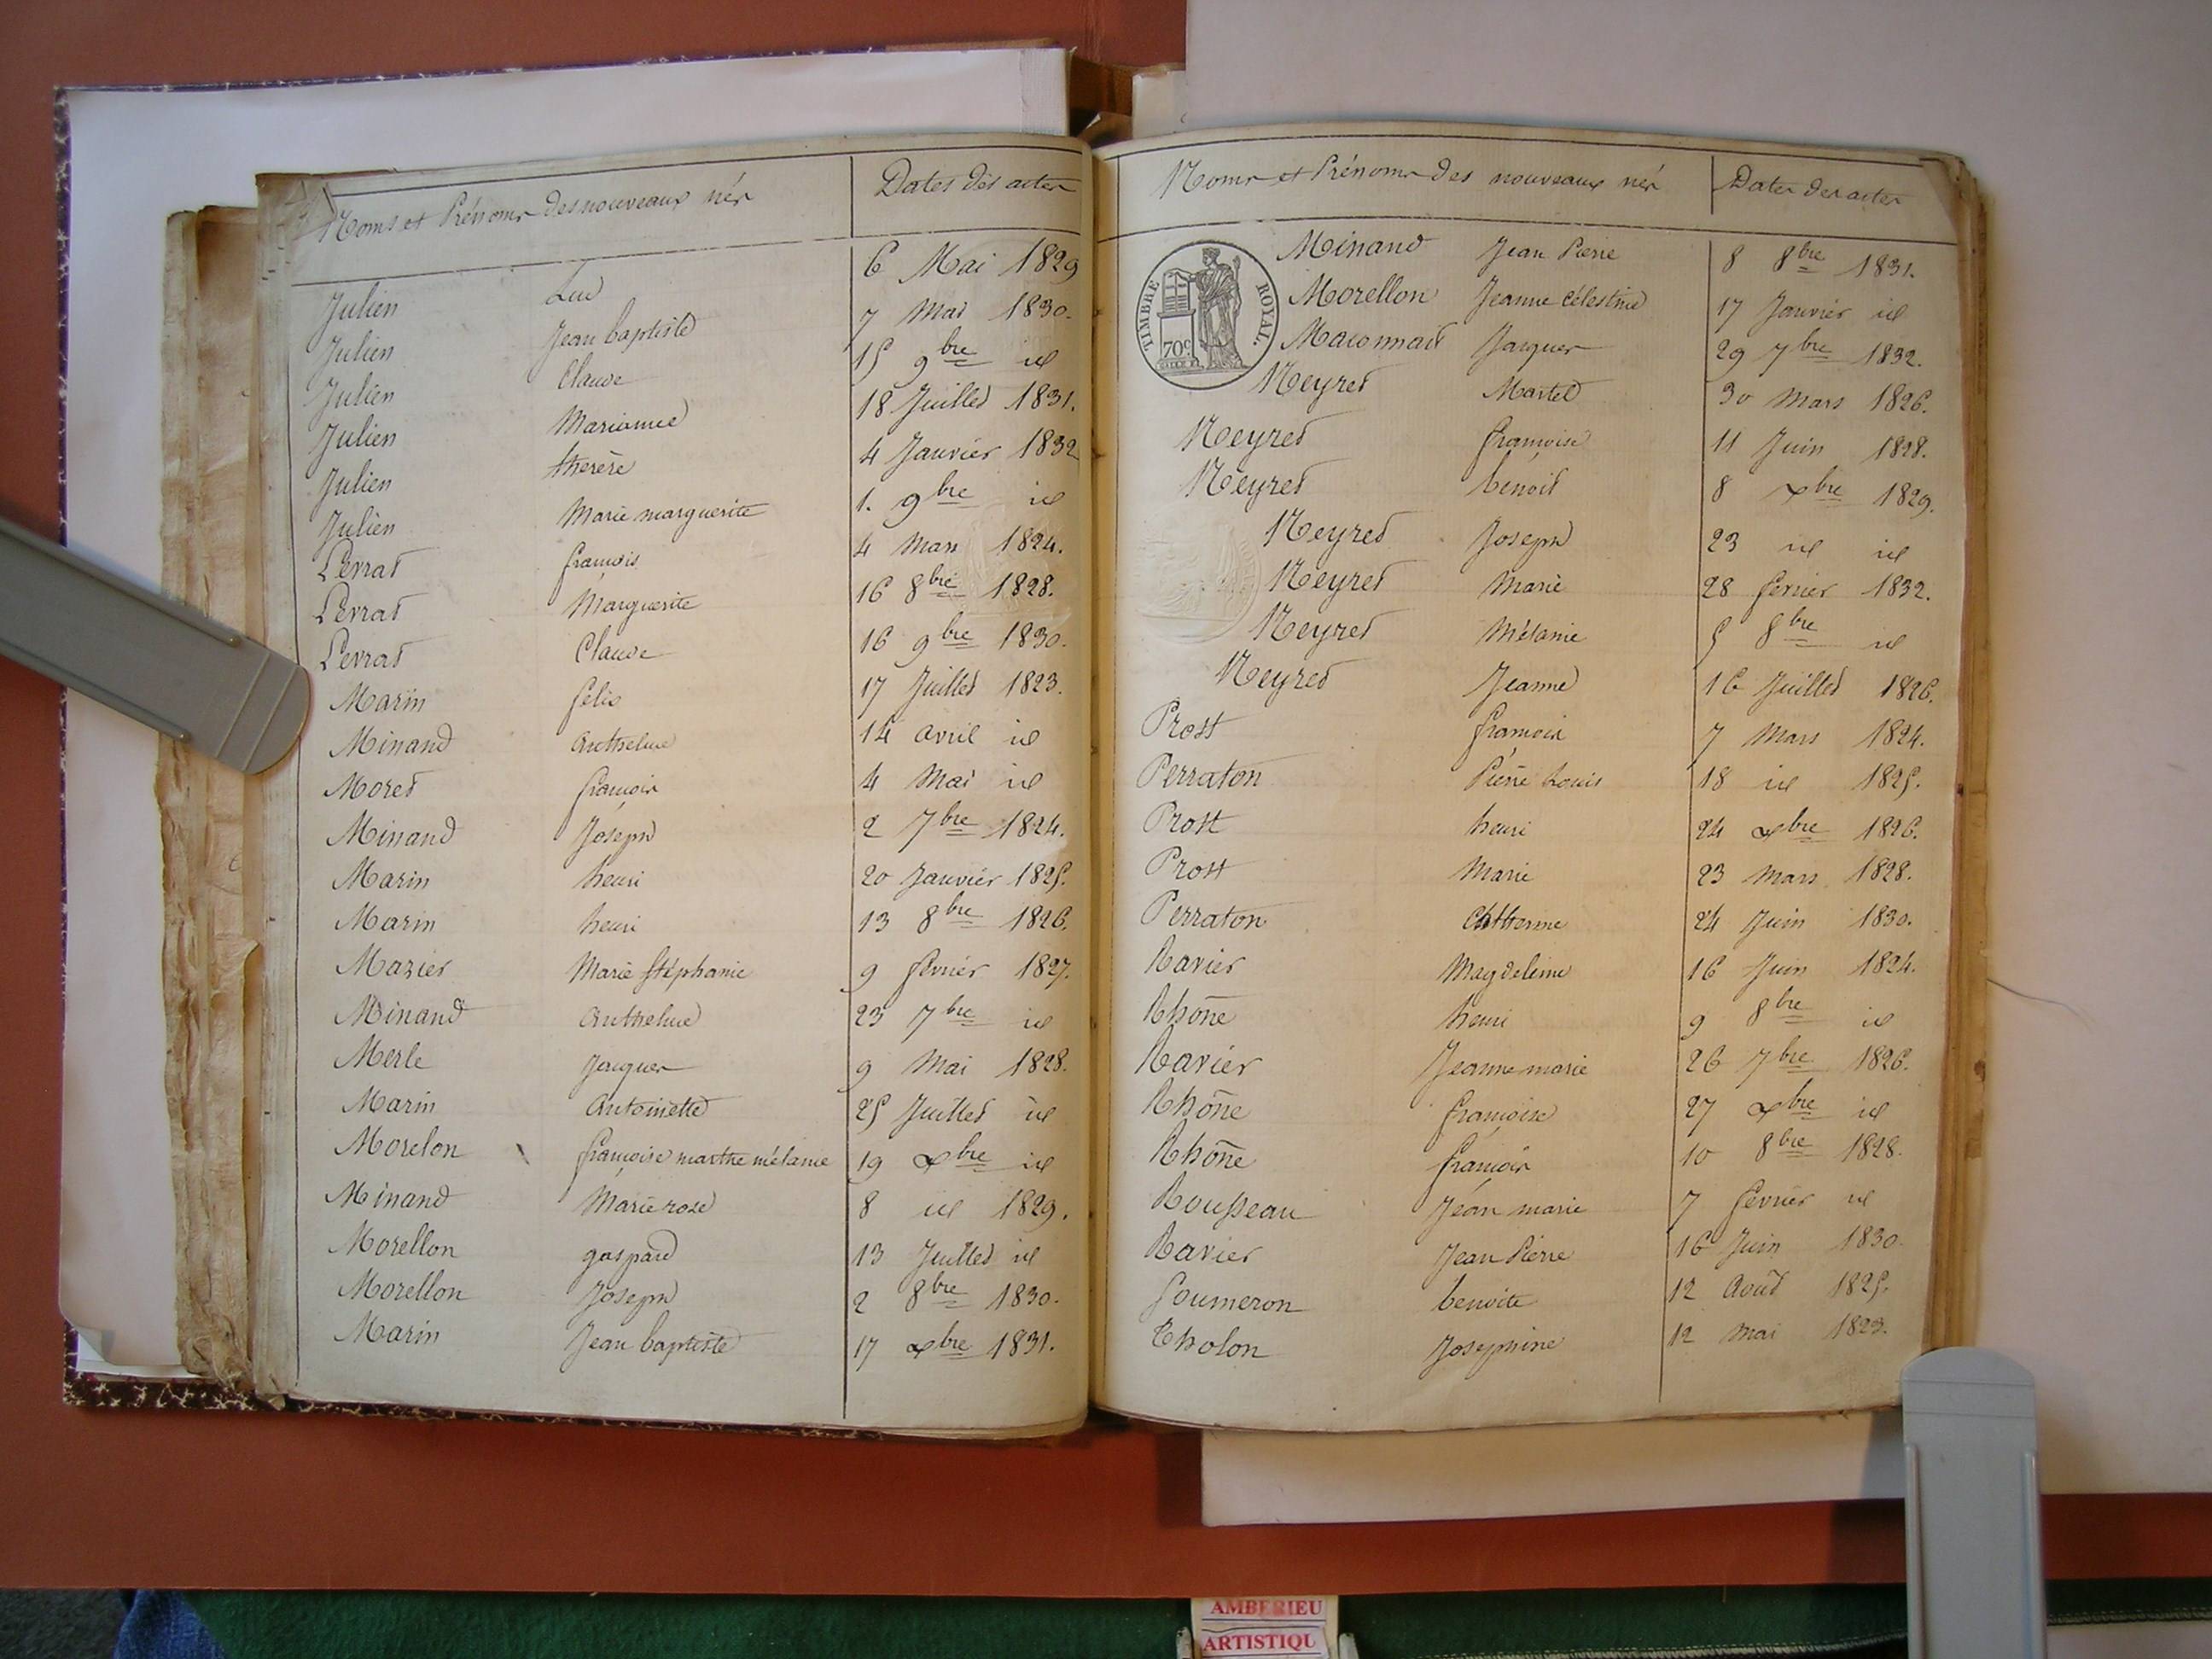 Noms et Prénoms des nouveaux nés Dates des actes
Julien Luc 6 Mai 1829
Julien Jean baptiste 7 Mai 1830.
Julien Claude 15 9bre id
Julien Marianne 18 Juillet 1831.
Julien therèse 4 Janvier 1832
Julien Marie marguerite 1. 9bre id
Levrat françois 4 Mars 1824.
Levrat Marguerite 16 8bre 1828.
Levrat Claude 16 9bre 1830.
Marin felix 17 Juillet 1823.
Minand Anthelme 14 avril id
Moret françois 4 Mai id
Minand Joseph 2 7bre 1824.
Marin henri 20 Janvier 1825.
Marin henri 13 8bre 1826.
Mazier Marie stéphanie 9 février 1827.
Minand Anthelme 23 7bre id
Merle Jacques 9 Mai 1828.
Marin Antoinette 25 Juillet id
Morelon françoise marthe mélanie 19 xbre id
Minand Marie rose 8 id 1829.
Morellon gaspard 13 Juillet id
Morellon Joseph 2 8bre 1830.
Marin Jean baptiste 17 xbre 1831.
Noms et Prénoms des nouveaux nés Dates des actes
TIMBRE ROYAL.
70c
Minand Jean Pierre 8 8bre 1831.
Morellon Jeanne Célestine 17 Janvier id
Maconnait Jacques 29 7bre 1832.
Neyret Martel 30 Mars 1826.
Neyret françoise 11 Juin 1828.
Neyret benoit 8 xbre 1829.
Neyret Joseph 23 id id
Neyret Marie 28 fevrier 1832.
Neyret Mélanie 5 8bre id
Neyret Jeanne 16 Juillet 1826.
Prost françois 7 Mars 1824.
Perraton Pierre Louis 18 id 1825.
Prost henri 24 xbre 1826.
Prost Marie 23 Mars 1828.
Perraton Catherine 24 Juin 1830.
Ravier Magdeleine 16 Juin 1824.
Rhône henri 9 8bre id
Ravier Jeanne marie 26 7bre 1826.
Rhône françoise 27 xbre id
Rhône françois 10 8bre 1828.
Rousseau Jean marie 7 février id
Ravier Jean Pierre 16 Juin 1830.
Soumeron benoite 12 Aout 1825.
Tholon Josephine 12 mai 1823.
AMBERIEU
ARTISTIQU